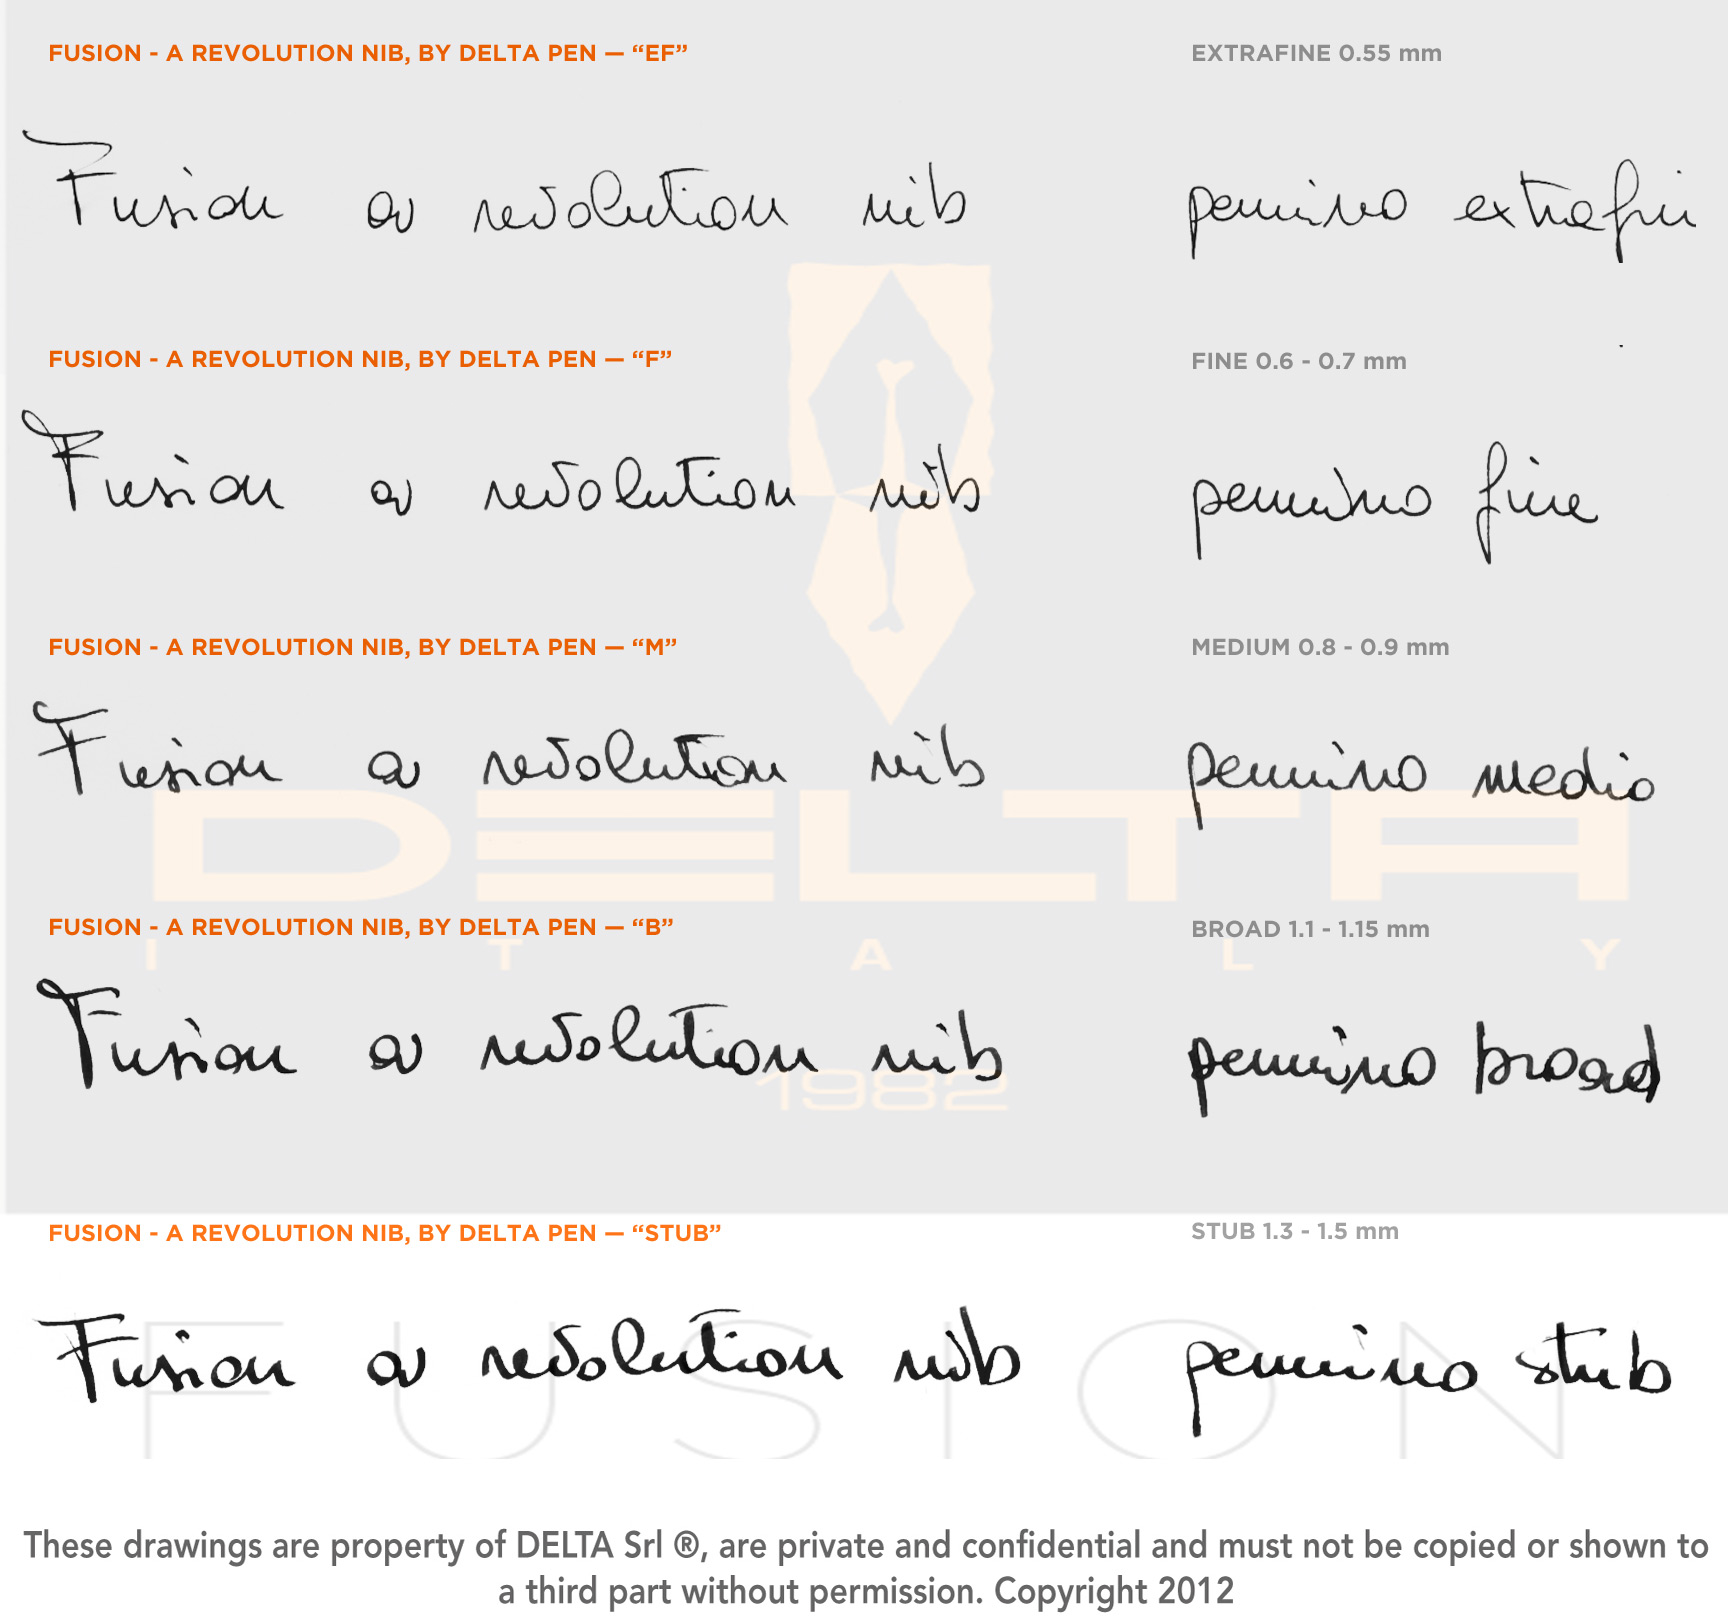 FUSION - A REVOLUTION NIB, BY DELTA PEN — “EF” EXTRAFINE 0.55 mm
Fusion a revolution nib pennino extrafin
FUSION - A REVOLUTION NIB, BY DELTA PEN — “F” FINE 0.6 - 0.7 mm
Fusion a revolution nib pennino fine
FUSION - A REVOLUTION NIB, BY DELTA PEN — “M” MEDIUM 0.8 - 0.9 mm
Fusion a revolution nib pennino medio
DELTA
FUSION - A REVOLUTION NIB, BY DELTA PEN — “B” BROAD 1.1 - 1.15 mm
ITALY
Fusion a revolution nib pennino broad
1982
FUSION - A REVOLUTION NIB, BY DELTA PEN — “STUB” STUB 1.3 - 1.5 mm
Fusion a revolution nib pennino stub
FUSION
These drawings are property of DELTA Srl ®, are private and confidential and must not be copied or shown to
a third part without permission. Copyright 2012